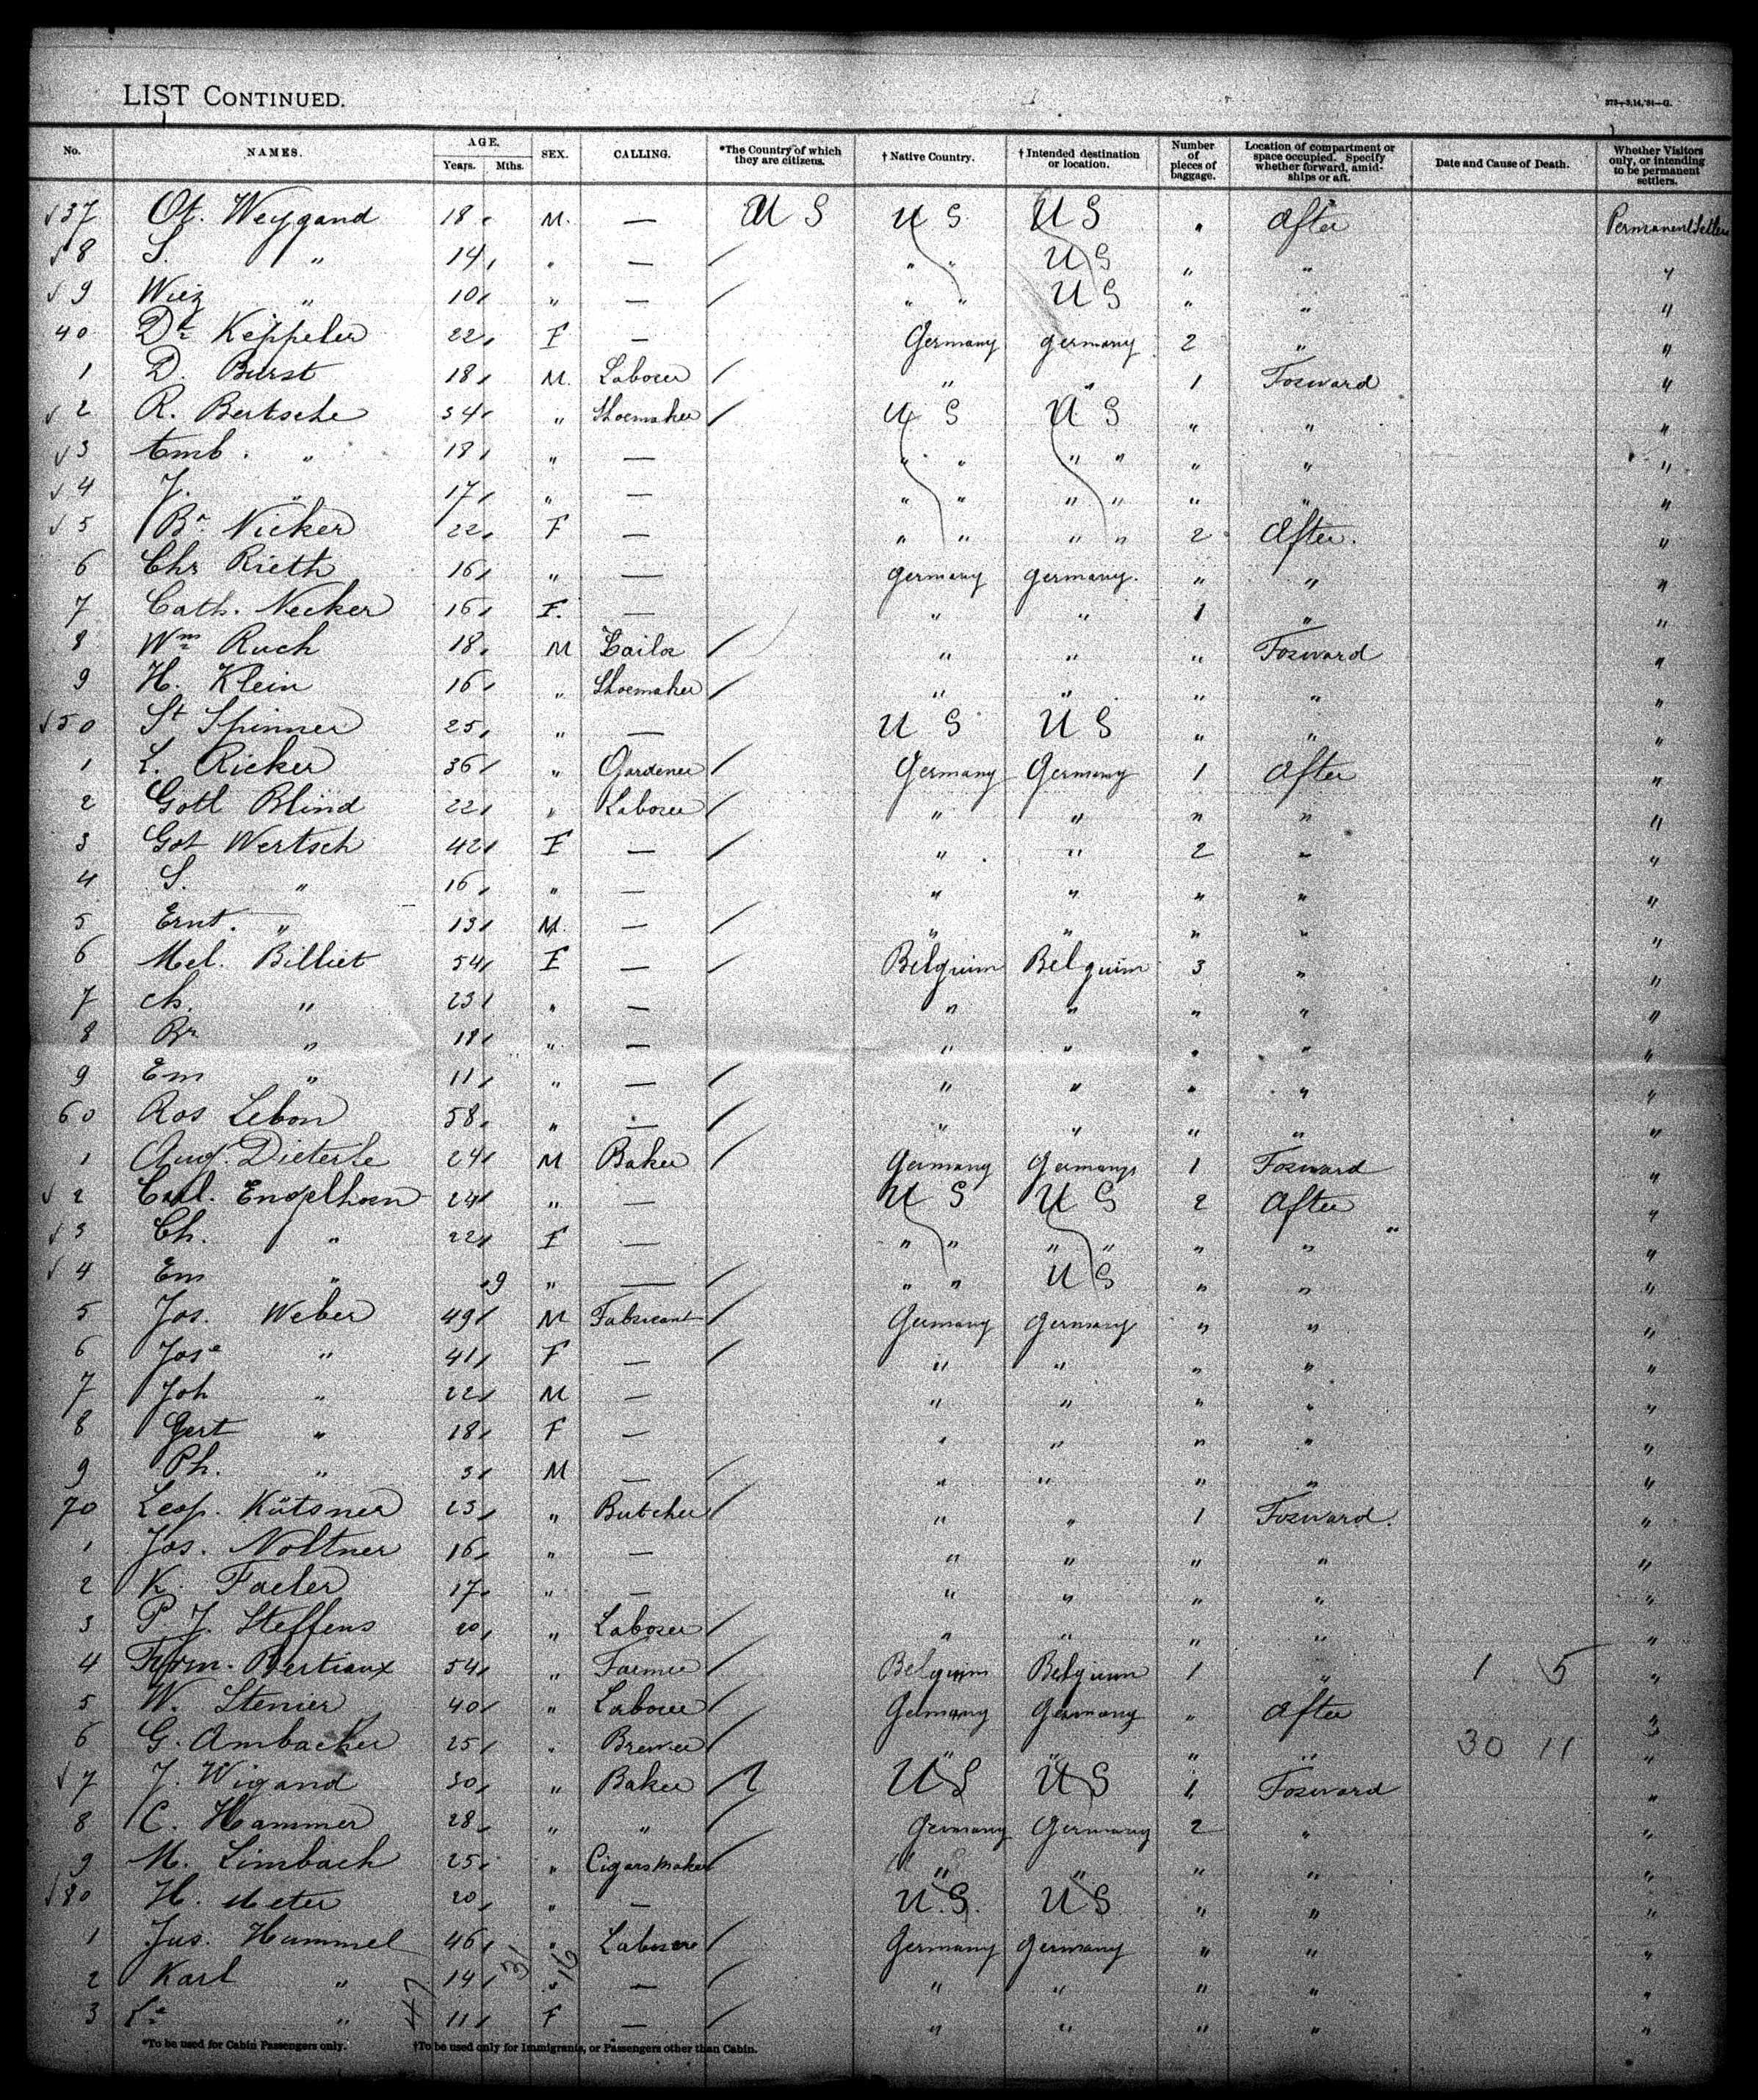 LIST CONTINUED.
373—3,14,'84—G.
No. NAMES. AGE. Years. Mths. SEX. CALLING. *The Country of which they are citizens. † Native Country. † Intended destination or location. Number of pieces of baggage. Location of compartment or space occupied. Specify whether forward, amidships or aft. Date and Cause of Death. Whether Visitors only, or intending to be permanent settlers.
√37 Ot. Weygand 18 M. — U S U S U S " After Permanent Settlers
√8 S. " 14 " — " " U S " " "
√9 " 10 " — " " U S " " "
40 Keppeler 22 F — Germany Germany 2 " "
1 D. Burst 18 M. Laborer " " 1 Forward "
√2 R. Bertsche 34 " Shoemaker U S U S " " "
√3 " 18 " — " " " " " " "
√4 J. " 17 " — " " " " " " "
√5 Br. Nicker 22 F — " " " " 2 After. "
6 Chr Rieth 16 " — Germany Germany. " " "
7 Cath. Necker 16 F. — " " 1 " "
8 Wm Ruch 18 M Tailor " " " Forward "
9 H. Klein 16 " Shoemaker " " " " "
√50 St Spinner 25 " — U S U S " " "
1 L. Ricker 36 " Gardener Germany Germany 1 After "
2 Gotl Blind 22 " Laborer " " " " "
3 Got Wertsch 42 F — " " 2 " "
4 S. " 16 " — " " " " "
5 Ernt. " 13 M. — " " " " "
6 Mel. Billiet 54 F — Belguim Belguim 3 " "
7 Ch. " 23 " — " " " " "
8 Br " 18 " — " " " " "
9 Em " 11 " — " " " " "
60 Ros Lebon 58 " — " " " " "
1 Aug. Dieterle 24 M Baker Germany Germany 1 Forward "
√2 Carl. Engelhorn 24 " — U S U S 2 After "
√3 Ch. " 22 F — " " " " " " "
√4 Em " 9 " — " " U S " " "
5 Jos. Weber 49 M Fabricant Germany Germany " " "
6 Jose " 41 F — " " " " "
7 Joh " 22 M — " " " " "
8 Gert " 18 F — " " " " "
9 Ph. " 3 M — " " " " "
70 Leop. Kütsner 23 " Butcher " " 1 Forward. "
1 Jos. Noltner 16 " — " " " " "
2 K. Faeler 17 " — " " " " "
3 P. J. Steffens 20 " Laborer " " " " "
4 Bertiaux 54 " Farmer Belguim Belguim 1 " 1 5 "
5 W. Stenier 40 " Laborer Germany Germany " After "
6 G. Ambacher 25 " Brewer " " " " 30 11 "
√7 J. Wigand 30 " Baker U S U S 1 Forward "
8 C. Hammer 28 " " Germany Germany 2 " "
9 M. Limbach 25 " Cigarsmaker " " " " "
√80 H. Meter 20 " — U.S. U S " " "
1 Jus. Hummel 46 " Laborer Germany Germany " " "
2 Karl " 14 " — " " " " "
3 " 11 F — " " " " "
47 31 16
*To be used for Cabin Passengers only. †To be used only for Immigrants, or Passengers other than Cabin.